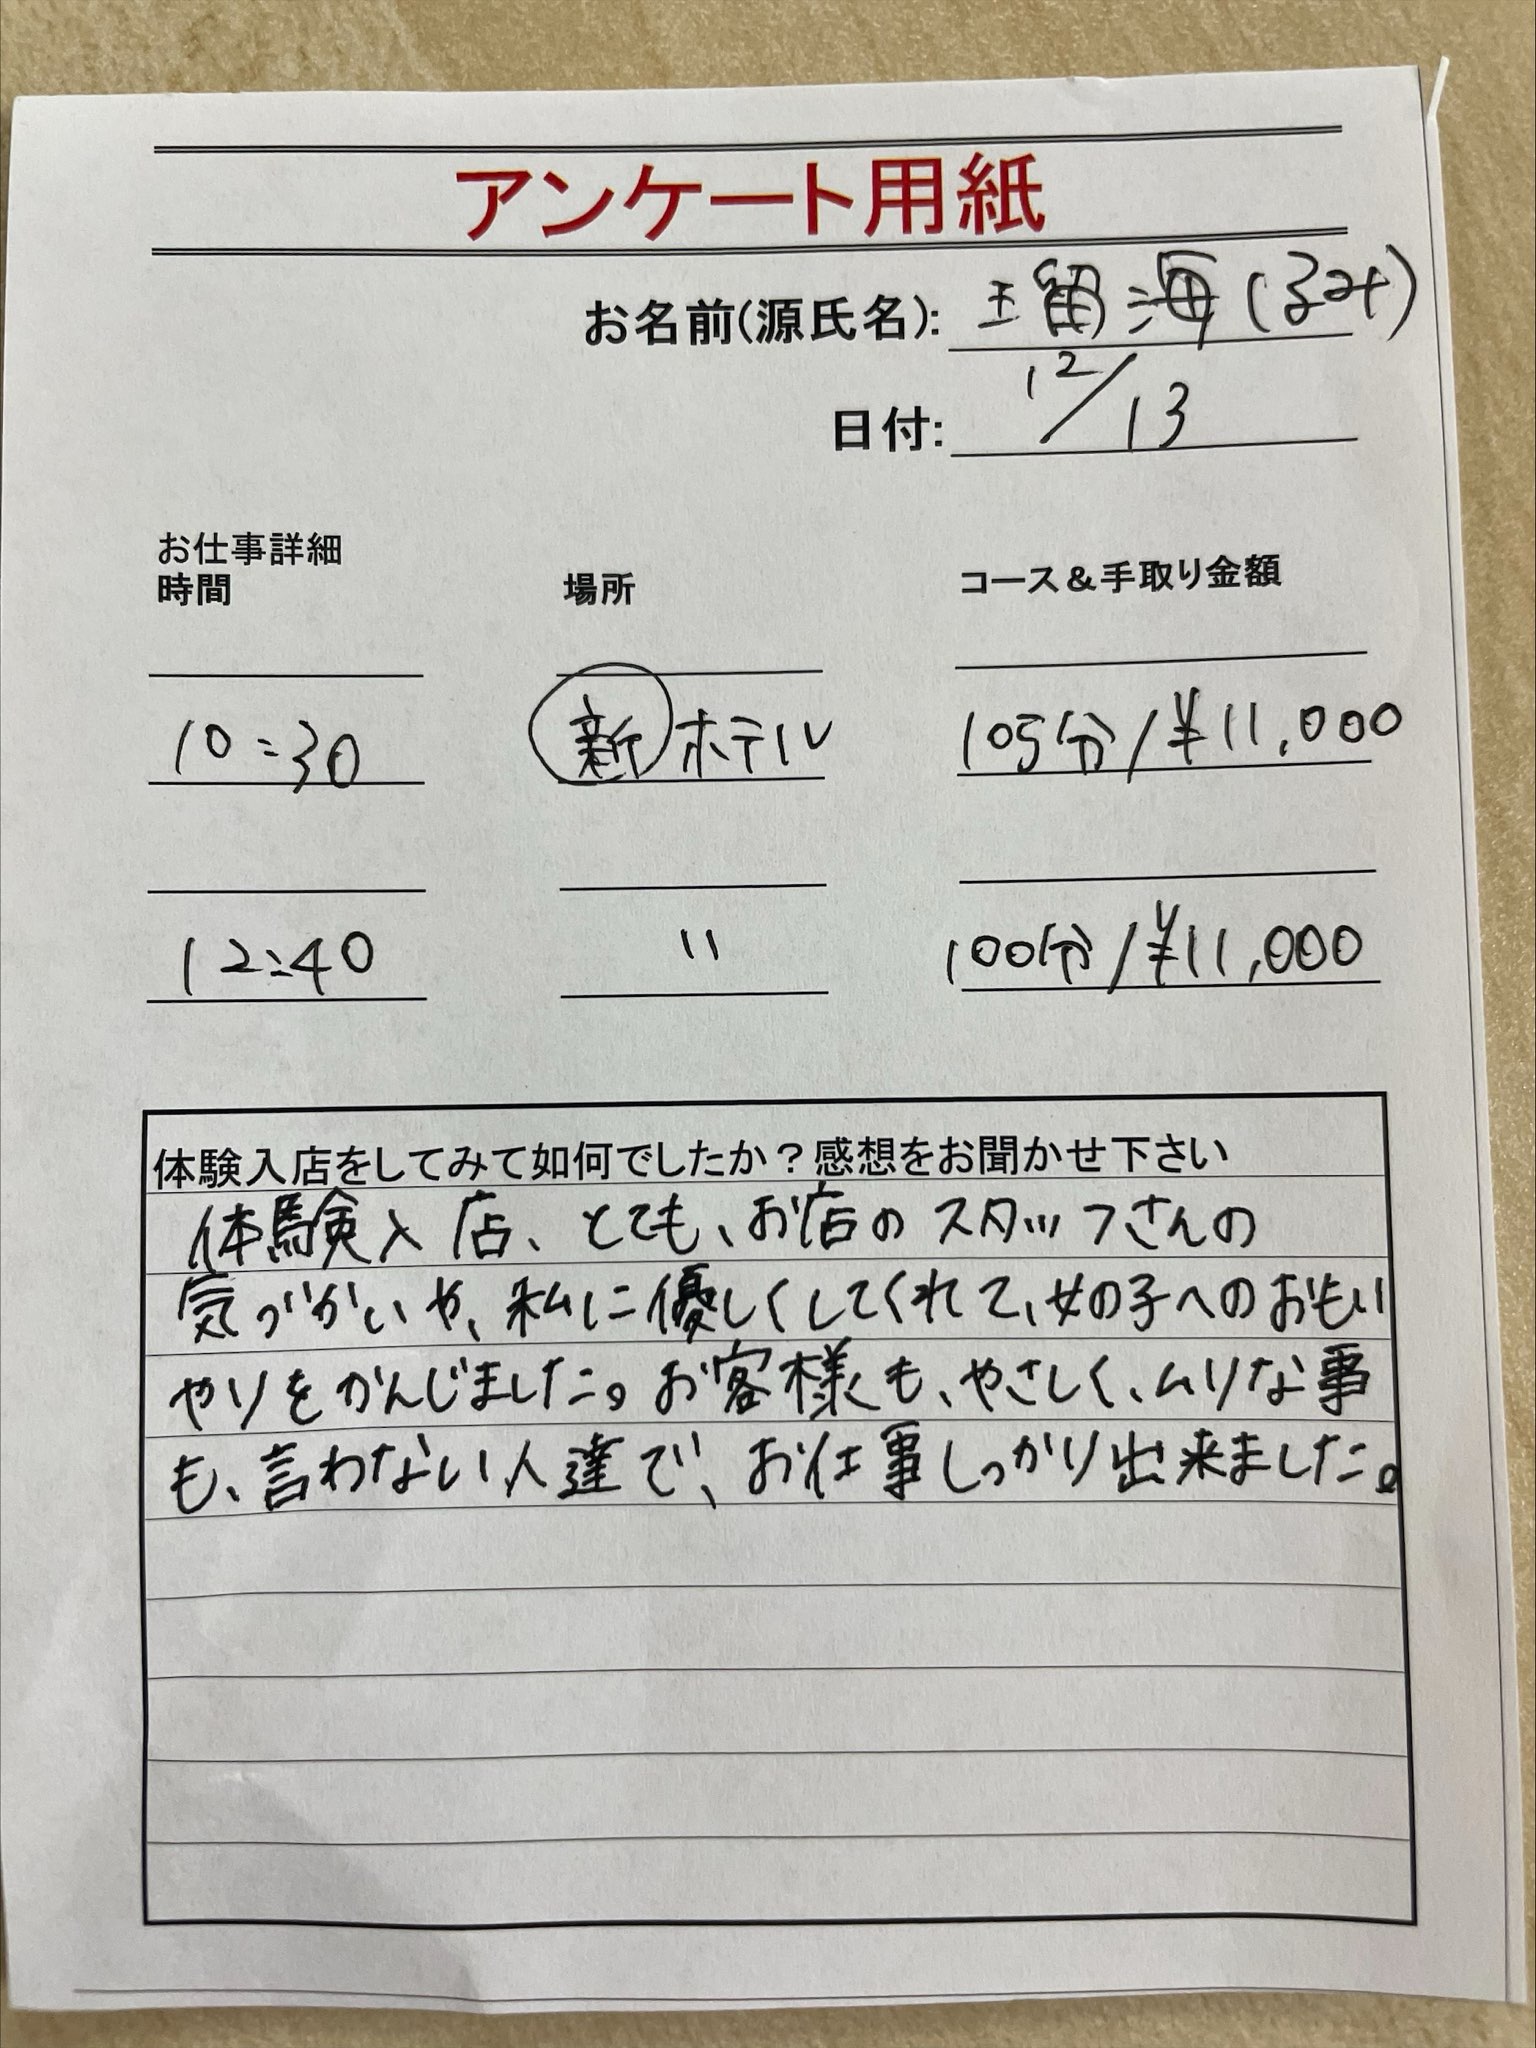 アンケート用紙
お名前(源氏名): 瑠海(るみ)
日付: 12/13
お仕事詳細
時間 場所 コース&手取り金額
10:30 新 ホテル 105分/¥11,000
12:40 〃 100分/¥11,000
体験入店をしてみて如何でしたか?感想をお聞かせ下さい
体験入店、とても、お店のスタッフさんの
気づかいや、私に優しくしてくれて、女の子へのおもい
やりをかんじました。お客様も、やさしく、ムリな事
も、言わない人達で、お仕事しっかり出来ました。